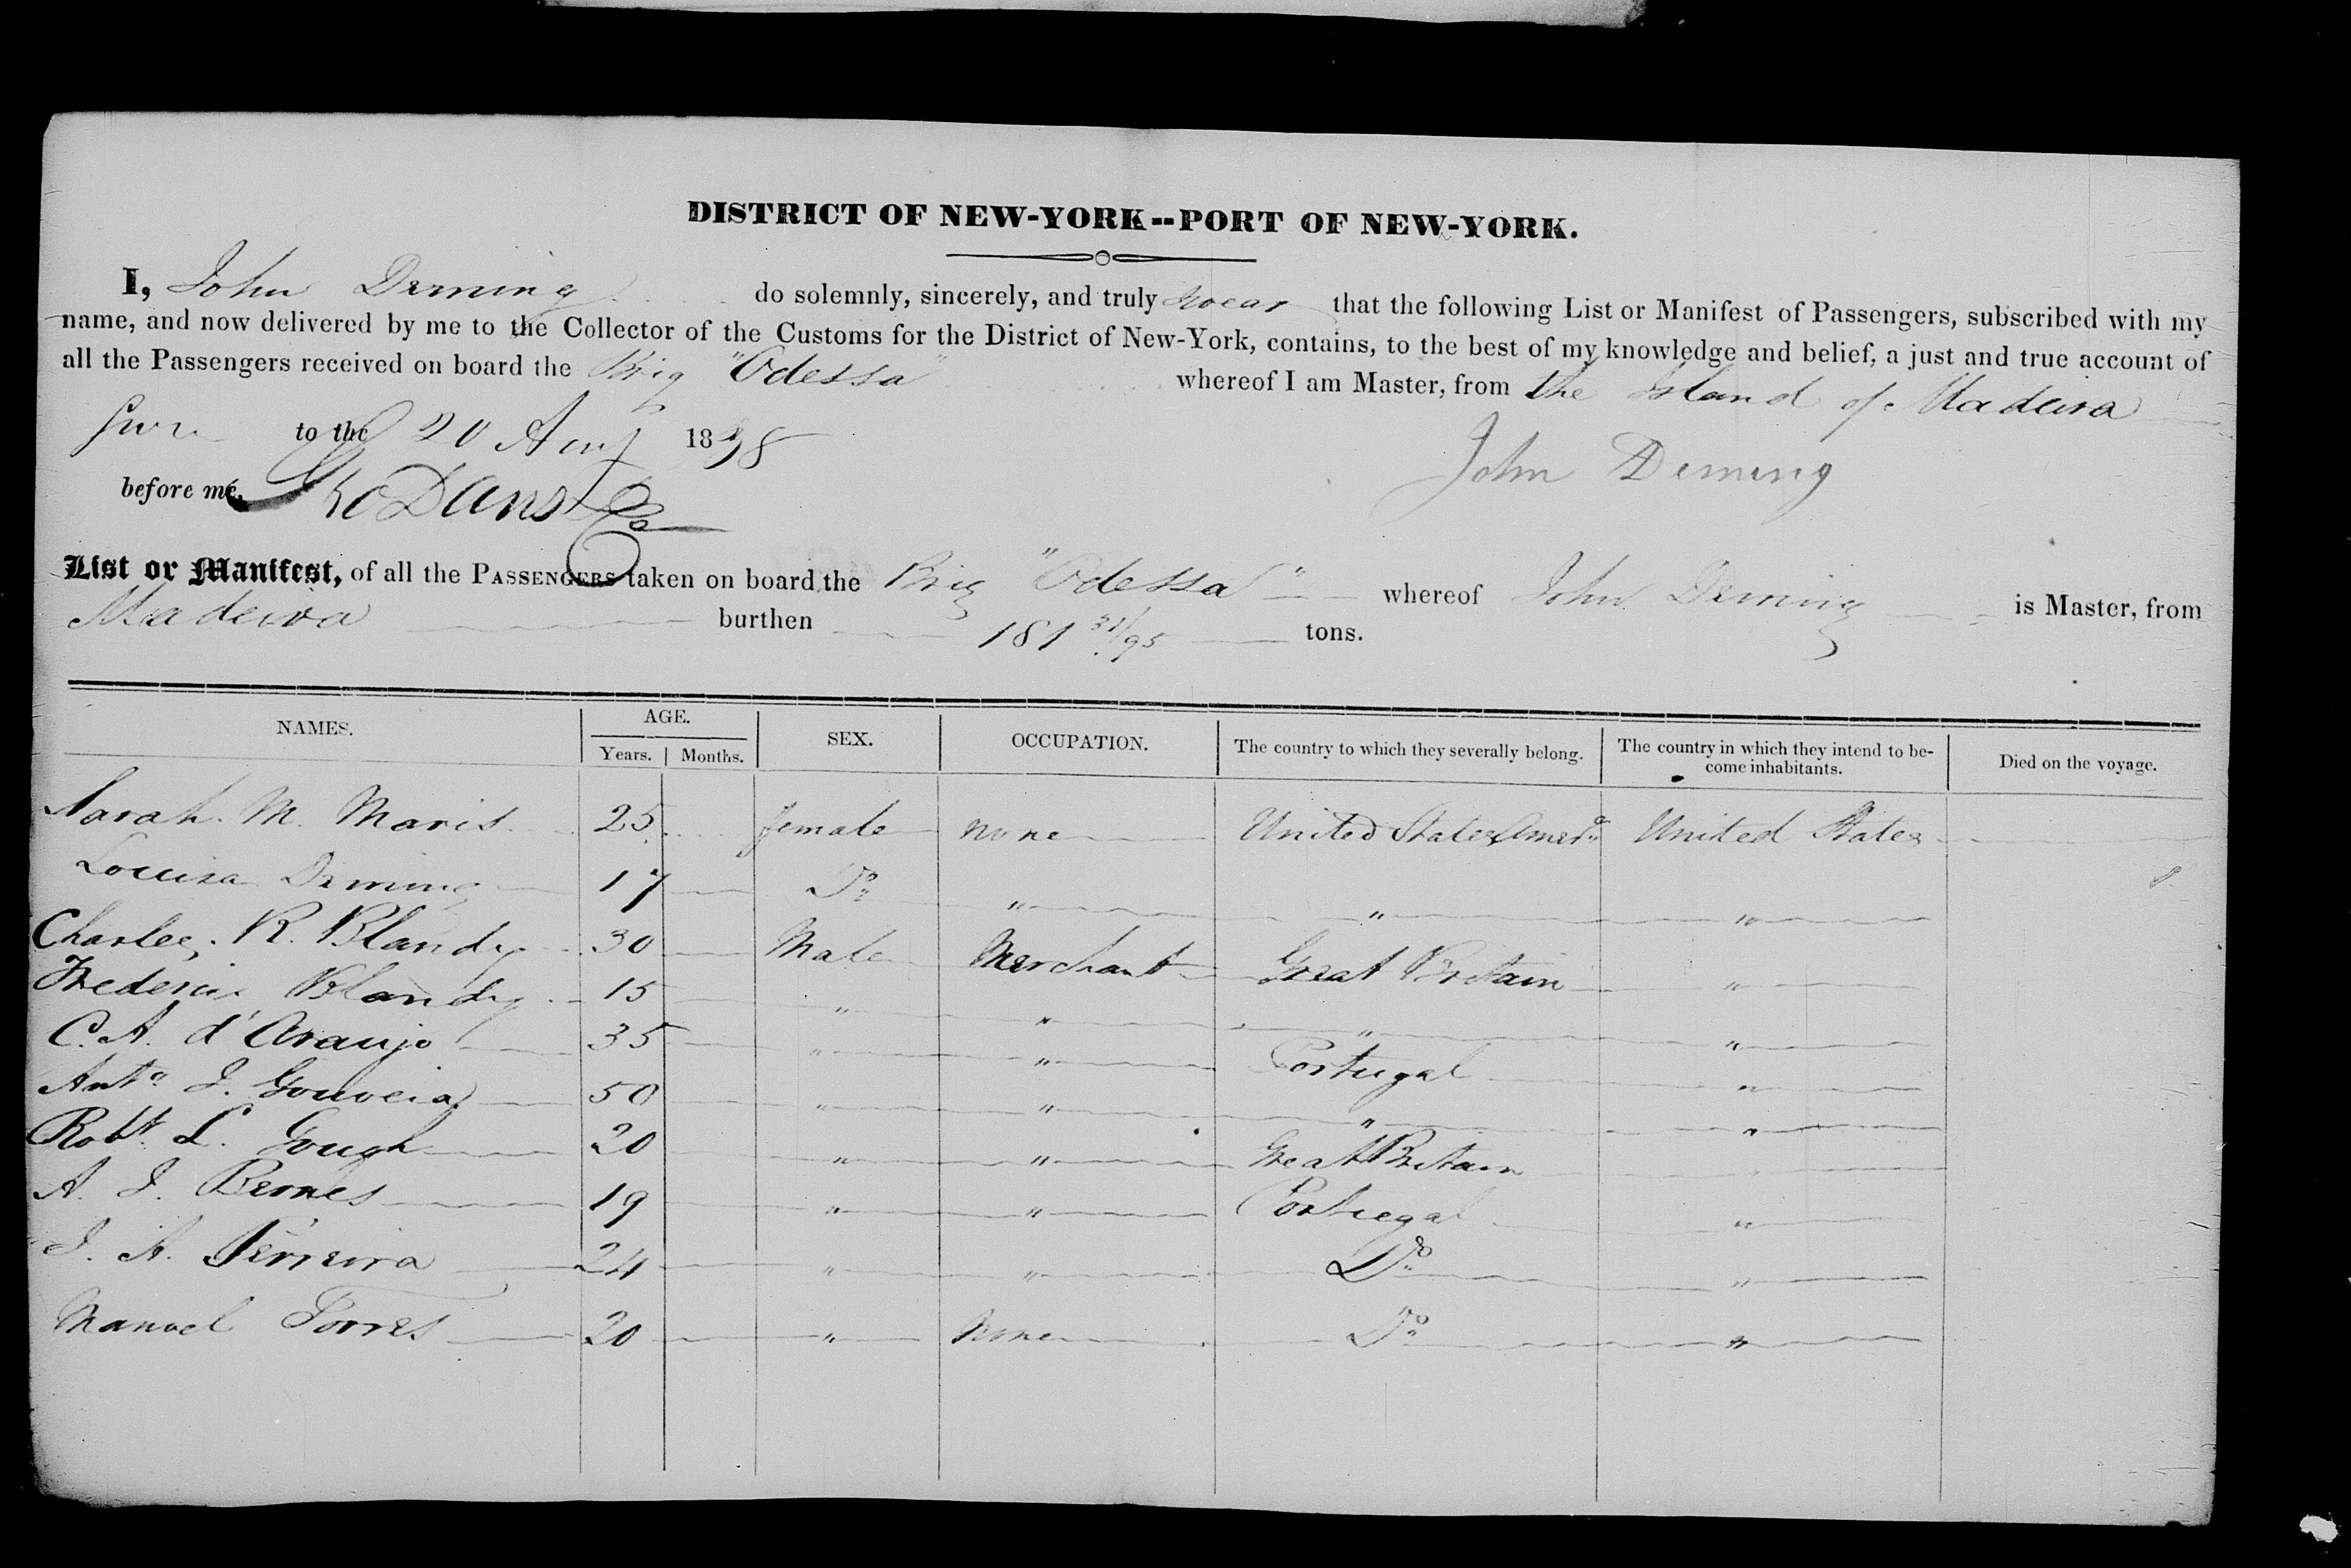 DISTRICT OF NEW-YORK--PORT OF NEW-YORK.
I, John Deming do solemnly, sincerely, and truly swear that the following List or Manifest of Passengers, subscribed with my
name, and now delivered by me to the Collector of the Customs for the District of New-York, contains, to the best of my knowledge and belief, a just and true account of
all the Passengers received on board the Brig "Odessa" whereof I am Master, from the Island of Madeira
to the 20 Aug 1838 John Deming
before me,
List or Manifest, of all the PASSENGERS taken on board the Brig "Odessa" whereof John Deming is Master, from
Madeira burthen 181 31/95 tons.
NAMES. AGE. SEX. OCCUPATION. The country to which they severally belong. The country in which they intend to be-come inhabitants. Died on the voyage.
Years. Months.
Sarah M. Maris 25 female none United States Amera United States
Louisa Deming 17 Do " " "
Charles R. Blandy 30 Male Merchant Great Britain "
Frederic Blandy 15 " " " "
C. A. d'Araujo 35 " " Portugal "
Anto J. Gouveia 50 " " " "
Robt. L. Gough 20 " " Great Britain
A. J. Bernes 19 " " Portugal "
J. A. Ferreira 24 " " Do "
Manoel Torres 20 " None Do "